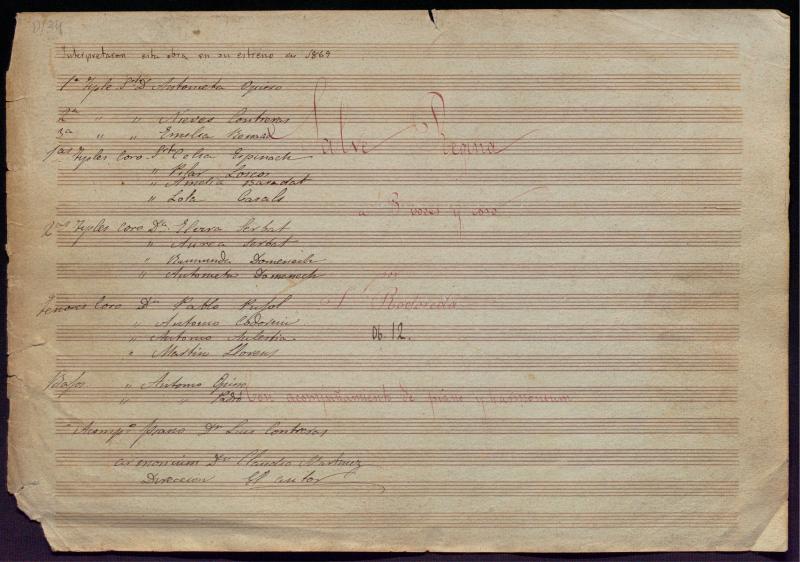 D/34
Interpretaron esta obra en su estreno en 1869
1ª Tiple Srta Dª Antonieta Opisso
2ª " " Nieves Contreras
3ª " " Emilia
Salve Regina
1as Tiples Coro Srta Celia Espinach
" Pilar Loscos
" Amelia Baradat
" Lola Casals
a 3 voces y coro
2as Tiples Coro Dª Elvira Serbat
" Aurea Serbat
" Raimunda Domenech
" Antonieta Domenech
por
Tenores Coro Dn Pablo Pujol
S. Rodoreda
" Antonio
" Antonio Aulestia
Ob. 12.
" Martin Llorens
Bajos " Antonio
" " Padró
Con acompañamiento de piano y harmonium
Acompto piano Dn Luis Contreras
armonium Dn Claudio Martinez
Direccion El autor